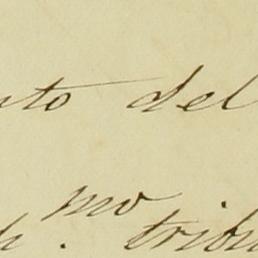 nto del
mo
h. tribu